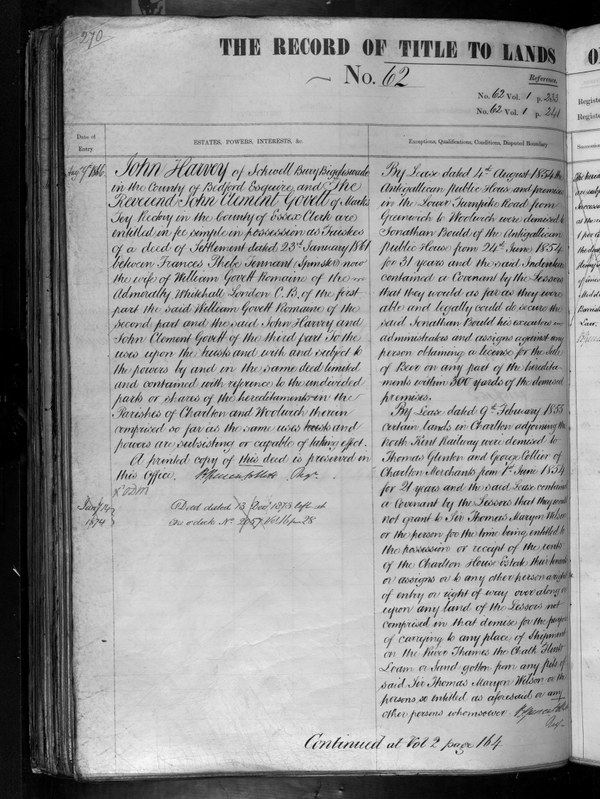 270
THE RECORD OF TITLE TO LANDS
No. 62
Reference.
No. 62 Vol. 1 p. 233
No. 62 Vol. 1 p. 241
Date of
Entry
ESTATES, POWERS, INTERESTS, &c.
Exceptions, Qualifications, Conditions, Disputed Boundary
1866
John Harvey of Ickwell Bury Biggleswade
in the County of Bedford Esquire and The
Reverend John Clement Govett of Marks
Tey Rectory in the County of Essex Clerk are
entitled in fee simple in possession as Trustees
of a deed of Settlement dated 23rd January 1861
between Frances Phebe Tennant Spinster now
the wife of William Govett Romaine of the
Admiralty Whitehall London C.B. of the first
part the said William Govett Romaine of the
second part and the said John Harvey and
John Clement Govett of the third part To the
uses upon the trusts and with and subject to
the powers by and in the same deed limited
and contained with reference to the undivided
parts or shares of the hereditaments in the
Parishes of Charlton and Woolwich therein
comprised so far as the same uses trusts and
powers are subsisting or capable of taking effect.
A printed copy of this deed is preserved in
this Office.
1874
Deed dated 13 Decr 1873 left at
o'clock No. 2057
By Lease dated 4th August 1854 the
Antigallican public House and premises
in the Lower Turnpike Road from
Greenwich to Woolwich were demised to
Jonathan Bould of the Antigallican
public House from 24th June 1854
for 31 years and the said Indenture
contained a Covenant by the Lessors
that they would as far as they were
able and legally could do secure the
said Jonathan Bould his executors
administrators and assigns against any
person obtaining a license for the Sale
of Beer on any part of the heredita-
ments within 300 yards of the demised
premises.
By Lease dated 9th February 1855
certain lands in Charlton adjoining the
North Kent Railway were demised to
Thomas Glenton and George Collier of
Charlton Merchants from 1st June 1854
for 21 years and the said Lease contained
a Covenant by the Lessors that they would
not grant to Sir Thomas Maryon Wilson
or the person for the time being entitled to
the possession or receipt of the rents
of the Charlton House Estate their
or assigns or to any other person a right
of entry or right of way over along or
upon any land of the Lessors not
comprised in that demise for the purpose
of carrying to any place of Shipment
on the River Thames the Chalk Flint
Loam or Sand gotten from any pits of
said Sir Thomas Maryon Wilson or the
persons so entitled as aforesaid or any
other persons whomsoever
Continued at Vol 2 page 164